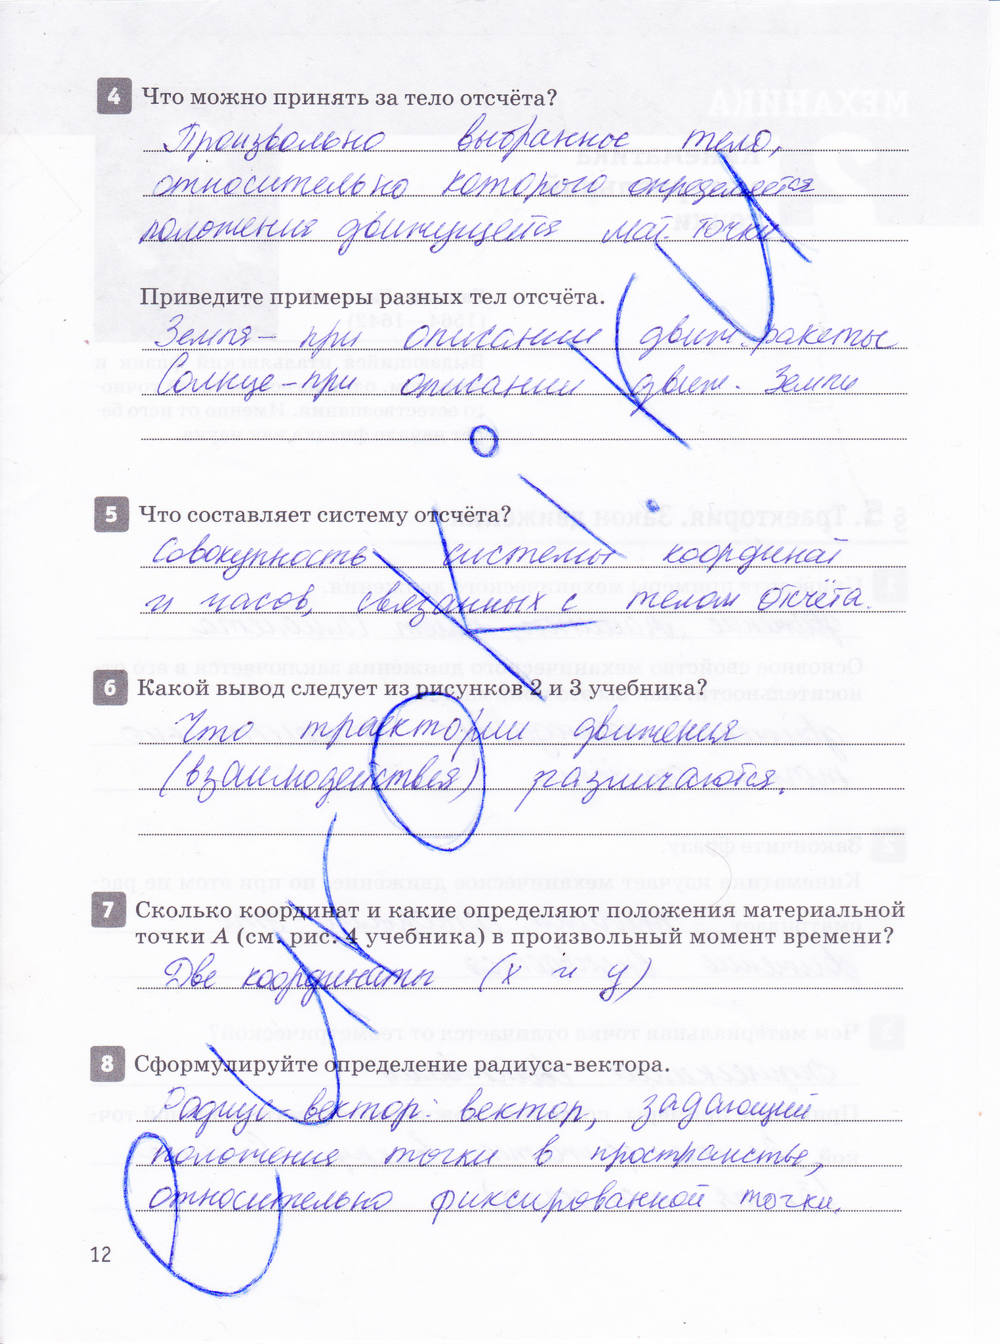 4 Что можно принять за тело отсчёта?
Произвольно выбранное тело,
относительно которого определяется
положения движущегося мат. точки.
Приведите примеры разных тел отсчёта.
Земля - при описании движ. ракеты
Солнце - при описании движ. Земли
5 Что составляет систему отсчёта?
Совокупность системы координат
и часов, связанных с телом отсчёта.
6 Какой вывод следует из рисунков 2 и 3 учебника?
Что траектории движения
(взаимодействия) различаются.
7 Сколько координат и какие определяют положения материальной
точки А (см. рис. 4 учебника) в произвольный момент времени?
Две координаты (x и y)
8 Сформулируйте определение радиуса-вектора.
Радиус-вектор: вектор, задающий
положения точки в пространстве,
относительно фиксированной точки.
12